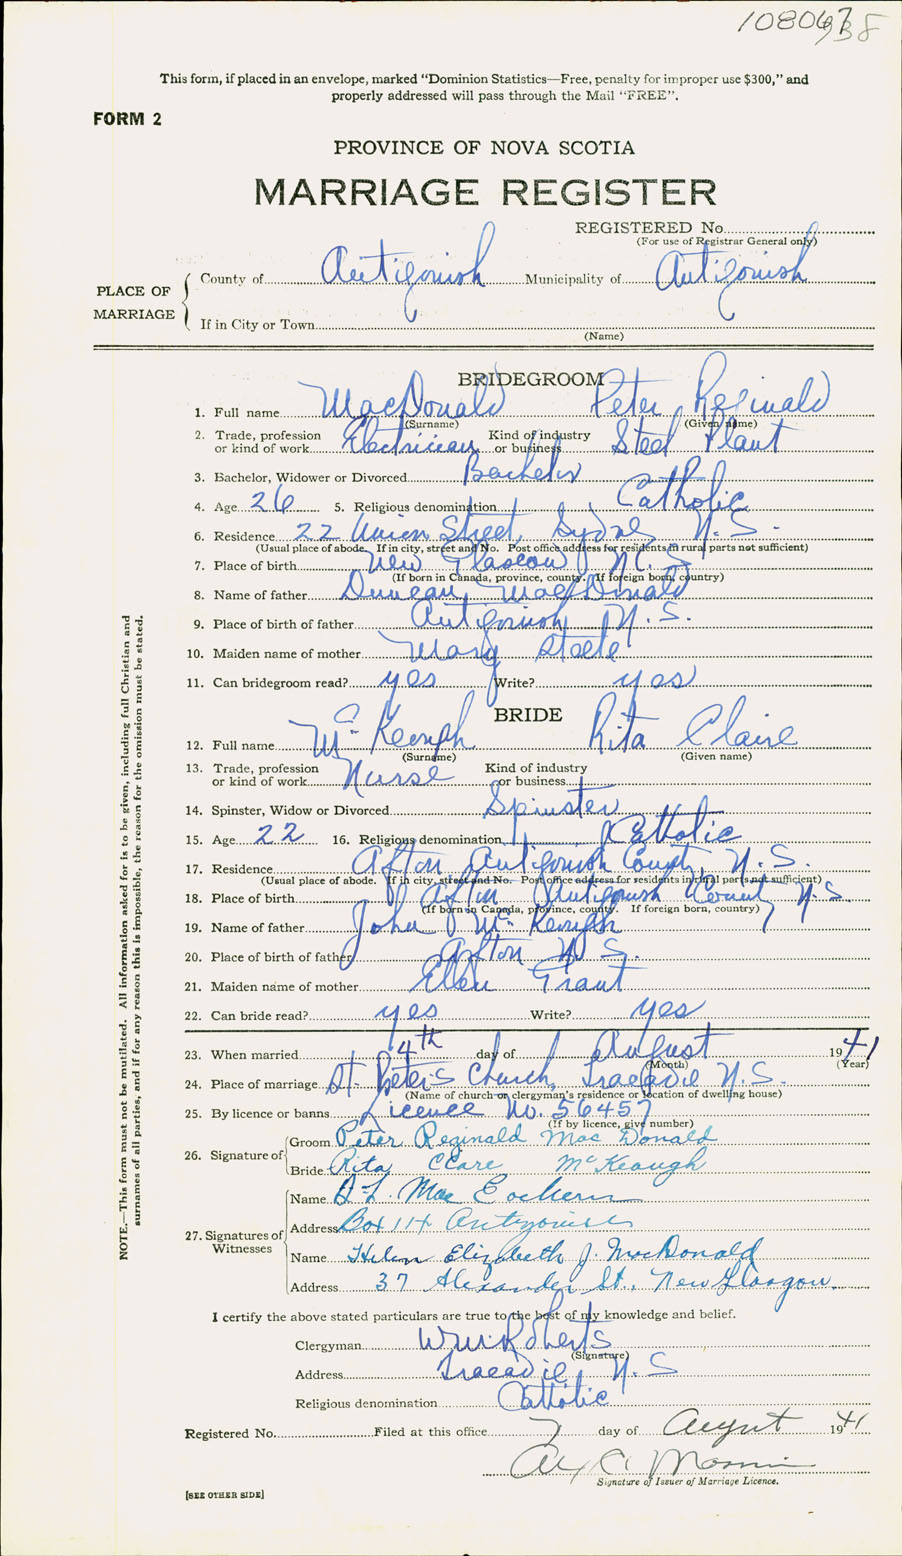 This form, if placed in an envelope, marked "Dominion Statistics—Free, penalty for improper use $300," and
properly addressed will pass through the Mail "FREE".
FORM 2
PROVINCE OF NOVA SCOTIA
MARRIAGE REGISTER
REGISTERED No.
(For use of Registrar General only)
PLACE OF MARRIAGE
County of Antigonish Municipality of Antigonish
If in City or Town
(Name)
BRIDEGROOM
1. Full name MacDonald Peter Reginald
(Surname) (Given name)
2. Trade, profession or kind of work Electrician Kind of industry or business Steel Plant
3. Bachelor, Widower or Divorced Bachelor
4. Age 26 5. Religious denomination Catholic
6. Residence 22 Union Street, Sydney N.S.
(Usual place of abode. If in city, street and No. Post office address for residents in rural parts not sufficient)
7. Place of birth New Glasgow N.S.
(If born in Canada, province, county. If foreign born, country)
8. Name of father Duncan MacDonald
9. Place of birth of father Antigonish N.S.
10. Maiden name of mother Mary Steele
11. Can bridegroom read? yes Write? yes
BRIDE
12. Full name McKeough Rita Claire
(Surname) (Given name)
13. Trade, profession or kind of work Nurse Kind of industry or business
14. Spinster, Widow or Divorced Spinster
15. Age 22 16. Religious denomination Catholic
17. Residence Afton Antigonish County N.S.
(Usual place of abode. If in city, street and No. Post office address for residents in rural parts not sufficient)
18. Place of birth Afton Antigonish County, N.S.
(If born in Canada, province, county. If foreign born, country)
19. Name of father John McKeough
20. Place of birth of father Afton N.S.
21. Maiden name of mother Ellen Grant
22. Can bride read? yes Write? yes
23. When married 4th day of August 1941
(Month) (Year)
24. Place of marriage St. Peter's Church, Tracadie N.S.
(Name of church or clergyman's residence or location of dwelling house)
25. By licence or banns Licence No. 56457
(If by licence, give number)
26. Signature of
Groom Peter Reginald MacDonald
Bride Rita Clare McKeough
27. Signatures of Witnesses
Name D. L. MacEachern
Address Box 114 Antigonish
Name Helen Elizabeth J. MacDonald
Address 37 Alexander St., New Glasgow
I certify the above stated particulars are true to the best of my knowledge and belief.
Clergyman Wm. Roberts
(Signature)
Address Tracadie, N.S
Religious denomination Catholic
Registered No. Filed at this office 7 day of August 1941
Signature of Issuer of Marriage Licence.
[SEE OTHER SIDE]
NOTE.—This form must not be mutilated. All information asked for is to be given, including full Christian and
surnames of all parties, and if for any reason this is impossible, the reason for the omission must be stated.